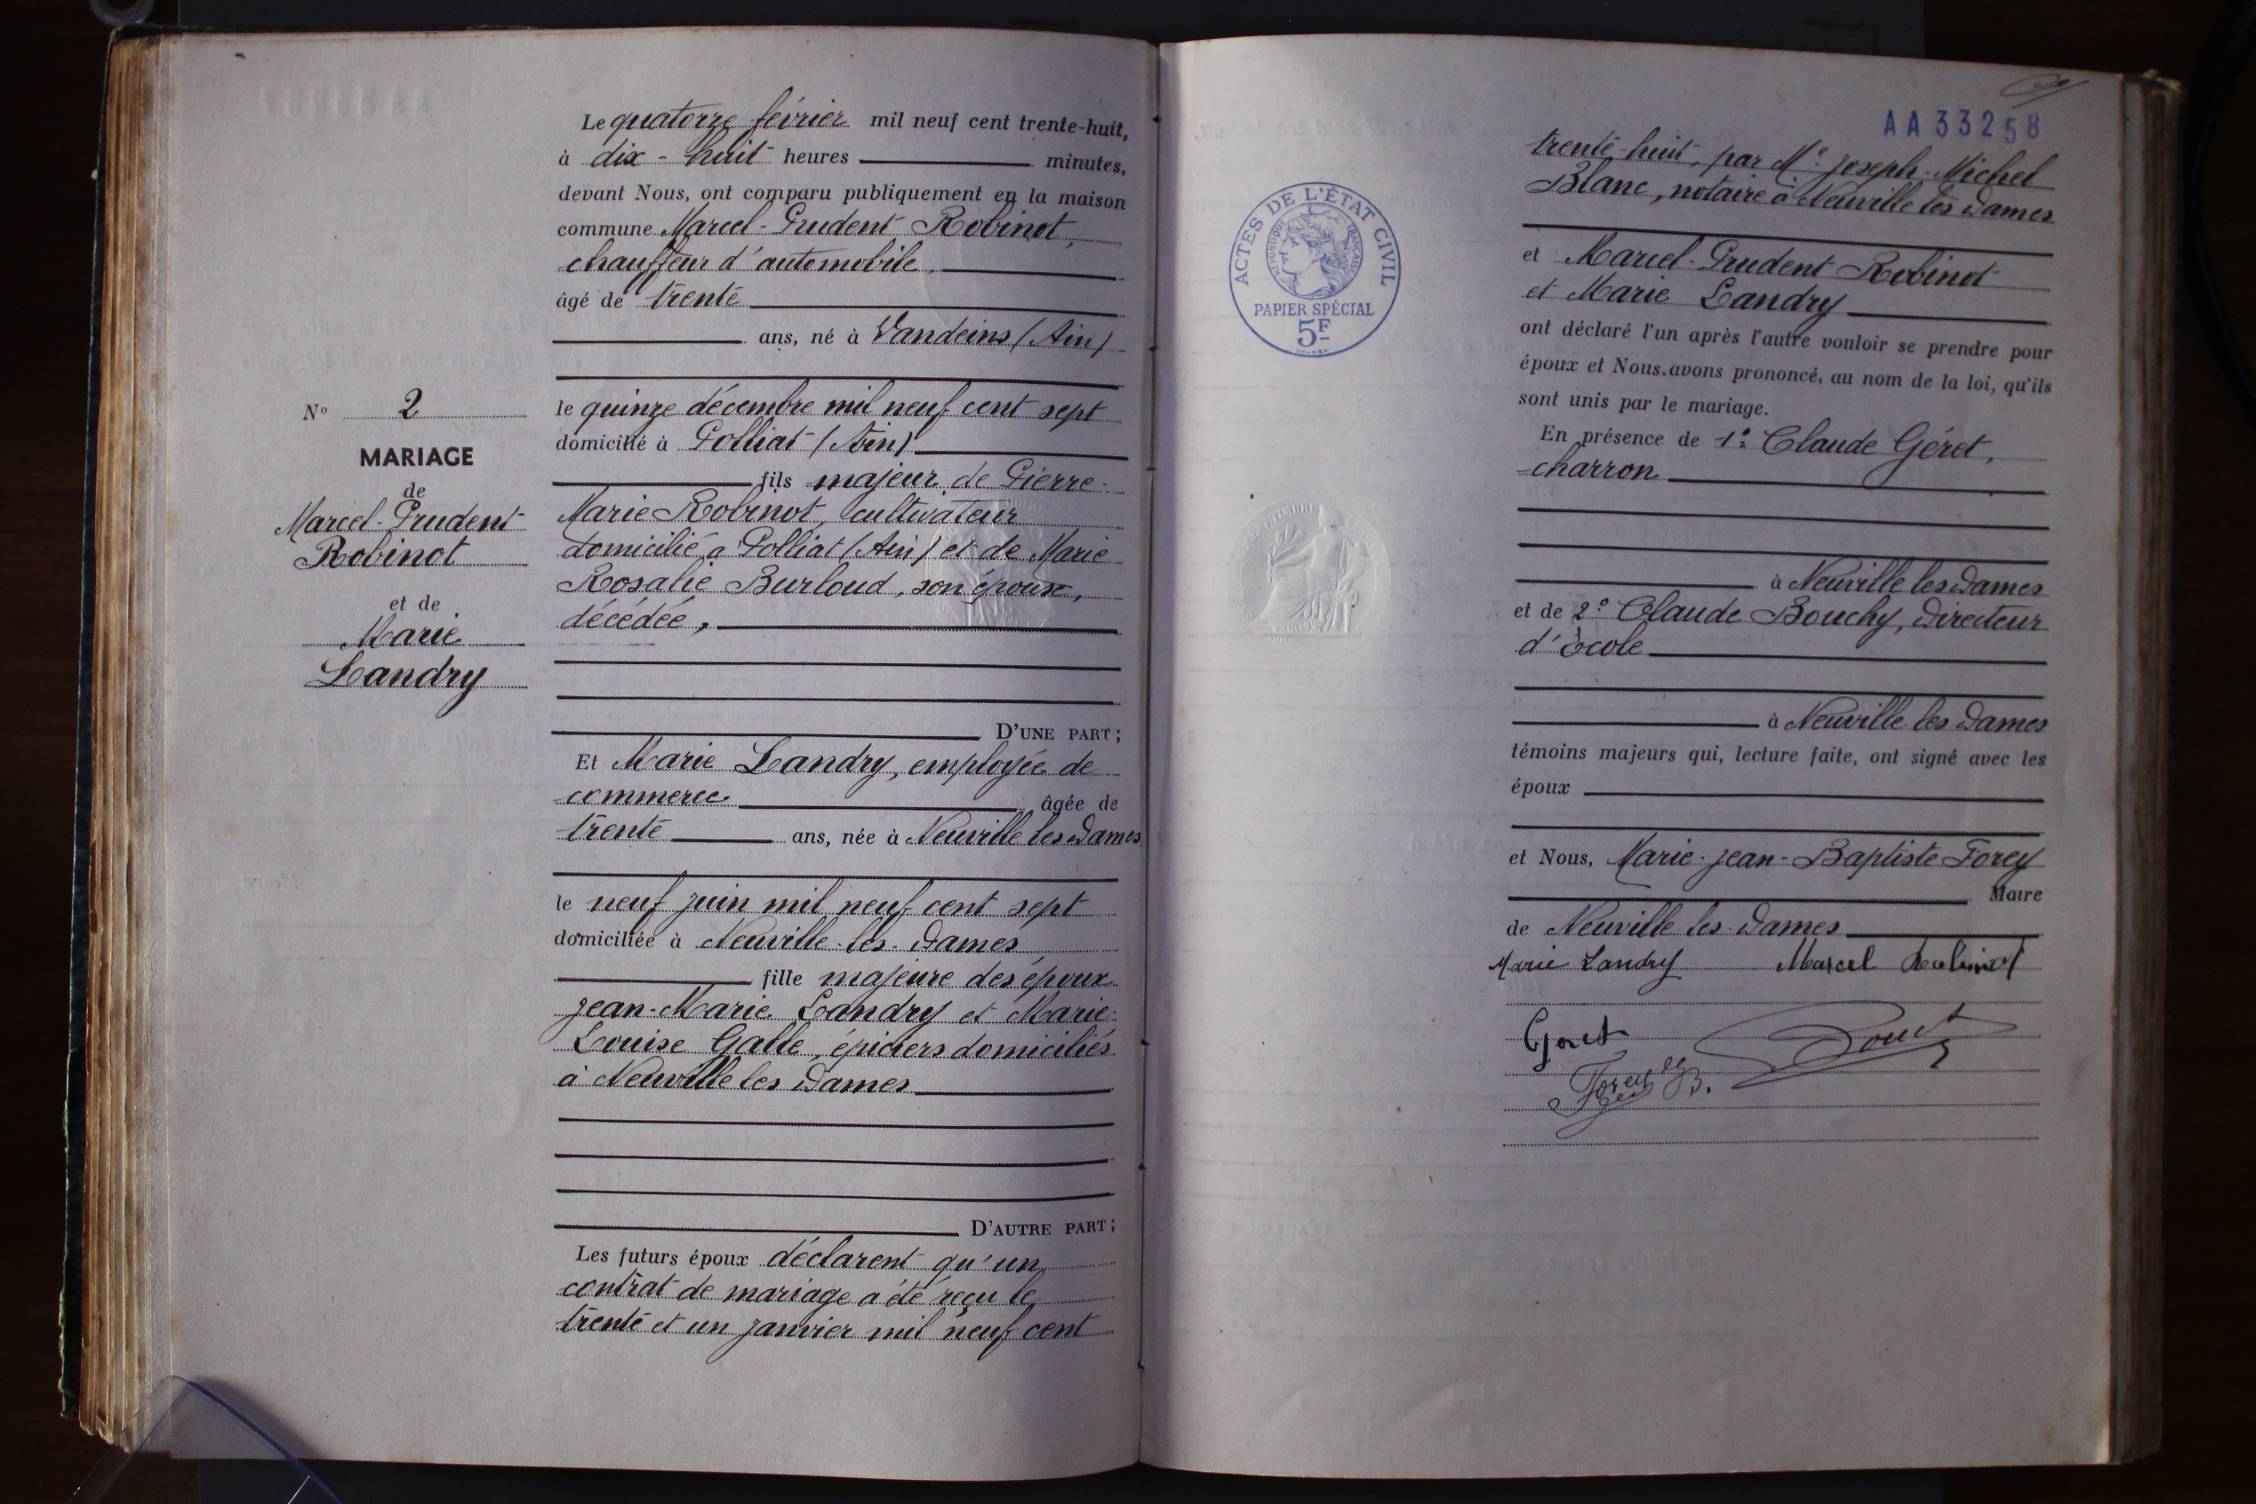 Le quatorze février mil neuf cent trente-huit,
à dix-huit heures minutes,
devant Nous, ont comparu publiquement en la maison
commune Marcel-Prudent Robinot,
chauffeur d'automobile,
âgé de trente
ans, né à Vandeins (Ain)
le quinze décembre mil neuf cent sept
domicilié à Polliat (Ain)
fils majeur de Pierre-
Marie Robinot, cultivateur
domicilié à Polliat (Ain) et de Marie
Rosalie Burloud, son épouse,
décédée,
D'UNE PART ;
Nº 2
MARIAGE
de
Marcel-Prudent
Robinot
et de
Marie
Landry
Et Marie Landry, employée de
commerce âgée de
trente ans, née à Neuville les Dames
le neuf juin mil neuf cent sept
domiciliée à Neuville-les-Dames
fille majeure des époux
Jean-Marie Landry et Marie-
Louise Galle, épiciers domiciliés
à Neuville les Dames
D'AUTRE PART ;
Les futurs époux déclarent qu'un
contrat de mariage a été reçu le
trente et un janvier mil neuf cent
AA33258
trente-huit, par Me Joseph-Michel
Blanc, notaire à Neuville les Dames
et Marcel-Prudent Robinot
et Marie Landry
ont déclaré l'un après l'autre vouloir se prendre pour
époux et Nous.avons prononcé, au nom de la loi, qu'ils
sont unis par le mariage.
En présence de 1º Claude Géret,
charron
à Neuville les Dames
et de 2º Claude Bouchy, Directeur
d'École
à Neuville les Dames
témoins majeurs qui, lecture faite, ont signé avec les
époux
et Nous, Marie-Jean-Baptiste Forey
Maire
de Neuville-les-Dames
Marie Landry Marcel Robinot
Géret
Forey
ACTES DE L'ÉTAT CIVIL
RÉPUBLIQUE FRANÇAISE
PAPIER SPÉCIAL
5F